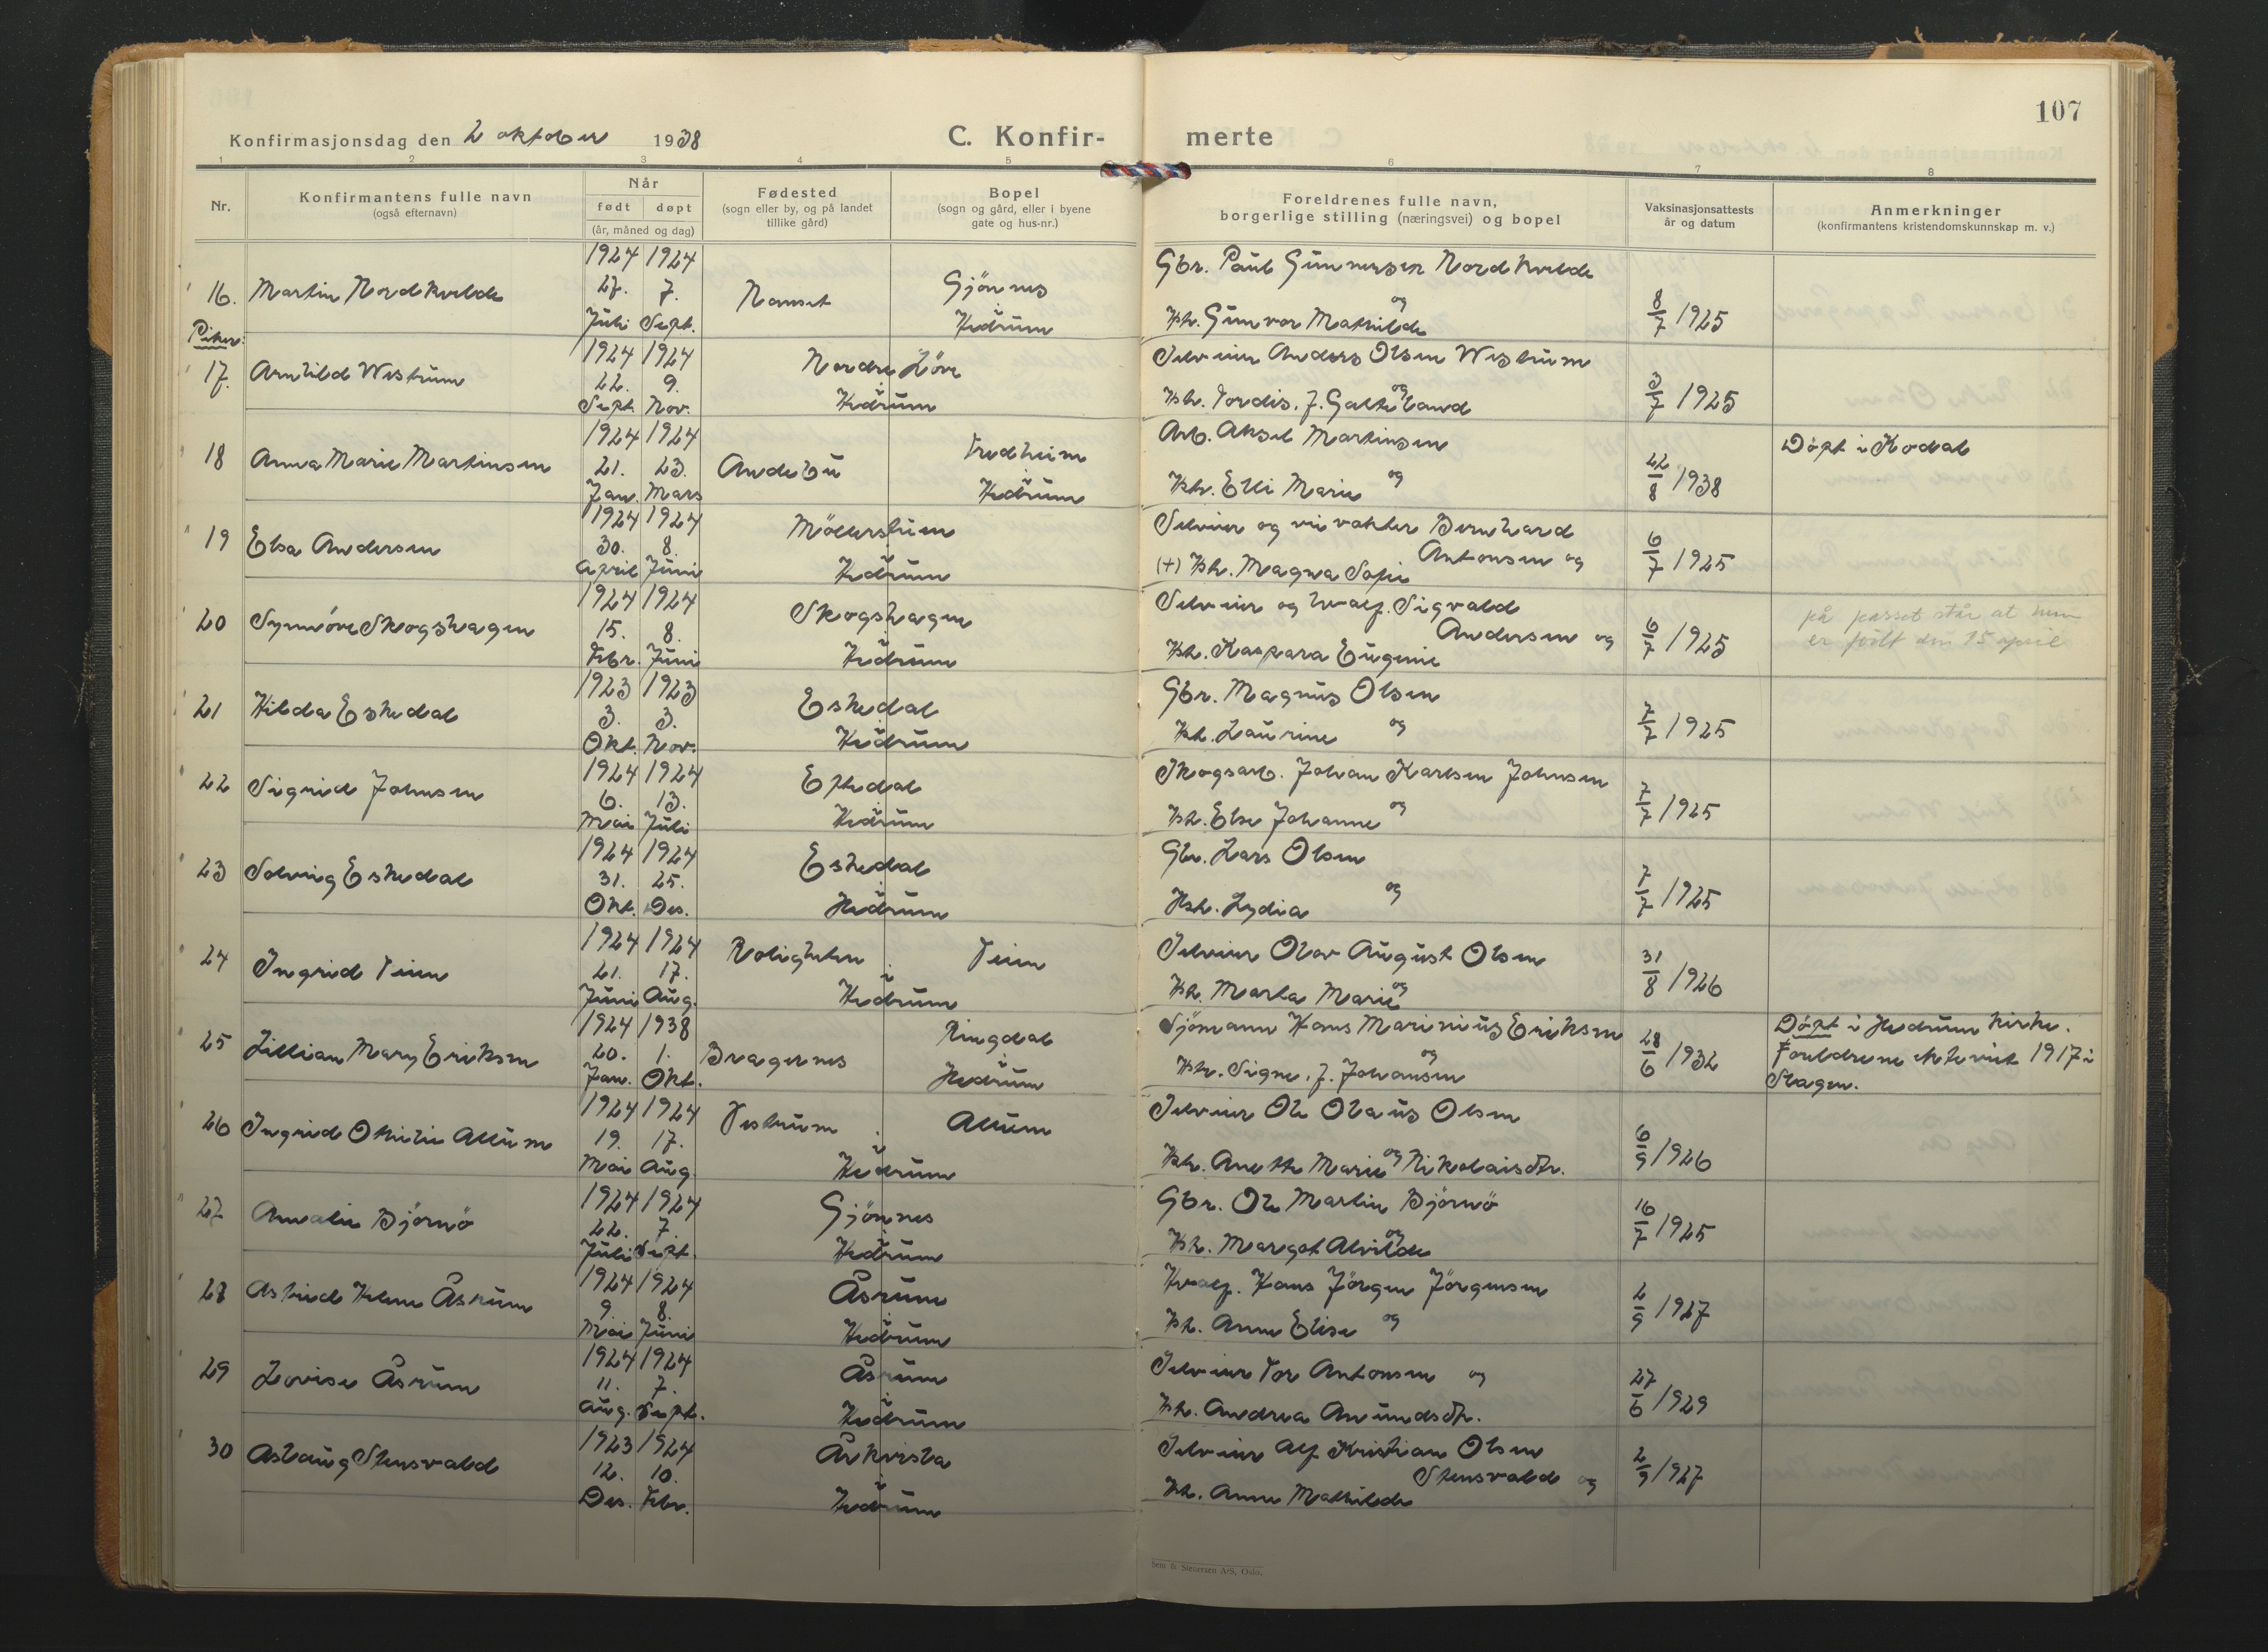 107
Konfirmasjonsdag den 2 oktober 1938
C. Konfir- merte
1 2 3 4 5 6 7 8
Nr.
Konfirmantens fulle navn
(også efternavn)
Når
født døpt
(år, måned og dag)
Fødested
(sogn eller by, og på landet
tillike gård)
Bopel
(sogn og gård, eller i byene
gate og hus-nr.)
Foreldrenes fulle navn,
borgerlige stilling (næringsvei) og bopel
Vaksinasjonsattests
år og datum
Anmerkninger
(konfirmantens kristendomskunnskap m. v.)
1924 1924 Gbr. Paul Gunnersen Nordkvelde
16. Martin Nordkvelde 27. 7. Namset Gjönnes og 8/7 1925
Juli Sept. Hedrum Hstr. Gunvor Mathilde
Piker:
1924 1924 Selveier Anders Olsen Westrum
17. Arnhild Westrum 22. 9. Nordre Löve og 3/7 1925
Sept. Nov. i Hedrum Hstr. Tordis, f. Galteland
1924 1924 Arb. Aksel Martinsen Döpt i Kodal
18 Anna Marie Martinsen 21. 23. Andebu Fredheim og 22/8 1938
Jan. Mars Hedrum Hstr. Elli Marie
1924 1924 Möllerstuen Selveier og veivokter Bernhard
19 Elsa Andersen 30. 8. Antonsen og 6/7 1925
April Juni i Hedrum (+) Hstr. Magna Sofie
1924 1924 Skogshagen Selveier og hvalf. Sigvald
20 Synnöve Skogshagen 15. 8. Andersen og 6/7 1925 på passet står at hun
Febr. Juni i Hedrum Hstr. Kaspara Eugenie er född den 15 april
1923 1923 Eskedal Gbr. Magnus Olsen
21 Hilda Eskedal 3. 3. og 7/7 1925
Okt. Nov. i Hedrum Hstr. Laurine
1924 1924 Eskedal Skogsarb. Johan Karlsen Johnsen
22 Sigrid Johnsen 6. 13. og 7/7 1925
Mai Juli i Hedrum Hstr. Else Johanne
1924 1924 Eskedal Gbr. Lars Olsen
23 Solveig Eskedal 31. 25. og 7/7 1925
Okt. Des. i Hedrum Hstr. Lydia
1924 1924 Roligheten Veien Selveier Olav August Olsen
24 Ingrid Veien 21. 17. og 31/8 1926
Juni Aug. i Hedrum Hstr. Marta Marie
1924 1938 Ringdal Sjömann Hans Marinius Eriksen Döpt i Hedrum kirke.
25 Lillian Mary Eriksen 20. 1. Bragernes og 28/6 1932 Foreldrene ekteviet 1917 i
Jan. Okt. i Hedrum Hstr. Signe, f. Johansen Slagen.
1924 1924 Vestrum Allum Selveier Ole Olaus Olsen
26 Ingrid Otilie Allum 19. 17. og 6/9 1926
Mai Aug. i Hedrum Hstr. Anette Marie Nikolaisdtr.
1924 1924 Gjönnes Gbr. Ole Martin Björnö
27 Amalie Björnö 22. 7. og 16/7 1925
Juli Sept. i Hedrum Hstr. Margot Alvilde
1924 1924 Åsrum Hvalf. Hans Jörgen Jörgensen
28 Astrid Helene Åsrum 9. 8. og 2/9 1927
Mai Juni i Hedrum Hstr. Anne Elise
1924 1924 Åsrum Selveier Tor Antonsen og
29 Lovise Åsrum 11. 7. 27/6 1929
Aug. Sept. i Hedrum Hstr. Andrea Anundsdtr.
1923 1924 Åskvisla Selveier Alf Kristian Olsen
30 Aslaug Stensvold 12. 10. Stensvold og 2/9 1927
Des. Febr. i Hedrum Hstr. Anne Mathilde
Sem & Stenersen A/S, Oslo.